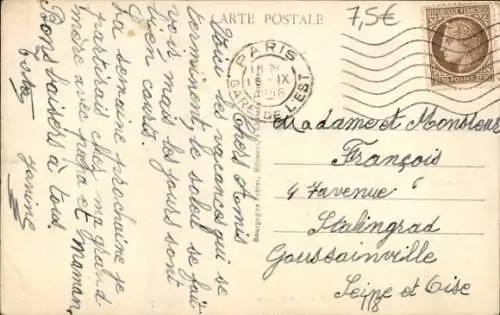 CARTE POSTALE
7,5€
PARIS
GARE DE L'EST
Chers Amis
Voici les vacances qui se
terminent, le soleil se fait
voir mais les jours sont
bien court.
La semaine prochaine je
partirais chez ma grand
mère avec papa et maman,
Bons baisers à tous.
Janine
Madame et Monsieur
François
avenue
Stalingrad
Goussainville
Seine et Oise